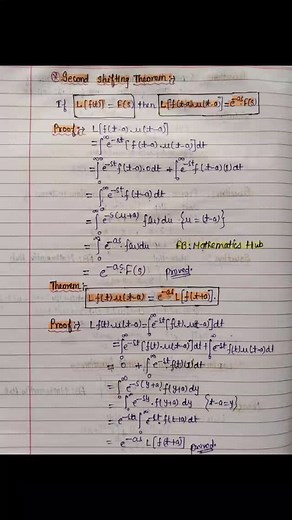 ② Second Shifting Theorem:-
If L[f(t)] = F(s) then L[f(t-a).u(t-a)] = e^{-as}F(s)
Proof:- L[f(t-a).u(t-a)]
= ∫_0^∞ e^{-st}[f(t-a).u(t-a)]dt
= ∫e^{-st}f(t-a).0dt + ∫e^{-st}.f(t-a)(1)dt
= ∫e^{-st}.f(t-a)dt
= ∫e^{-s(u+a)}f(u)du {u=(t-a)}
= ∫e^{-as}.f(u)du FB: Mathematics Hub
= e^{-as}.F(s) proved.
Theorem:-
L f(t).u(t-a) = e^{-as}L[f(t+a)].
Proof:- L f(t).u(t-a) = ∫e^{-st}[f(t).u(t-a)]dt
= ∫e^{-st}[f(t).u(t-a)]dt + ∫e^{-st}f(t)u(t-a)dt
= 0 + ∫e^{-st}f(t)(1)dt
= ∫e^{-s(y+a)}f(y+a)dy
= ∫e^{-sy}.f(y+a)dy {t-a=y}
= e^{-sa}∫e^{-st}f(t+a)dt
= e^{-as}L[f(t+a)] proved.